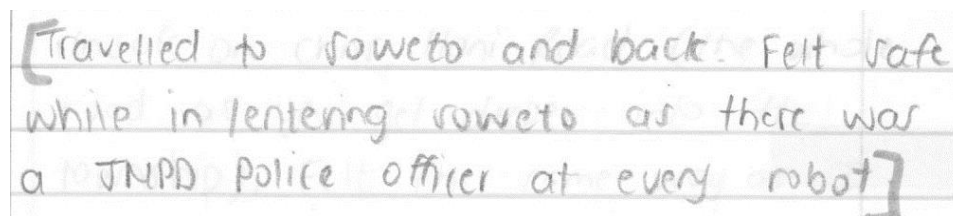 [Travelled to Soweto and back. Felt safe
while in/entering Soweto as there was
a JMPD police officer at every robot]